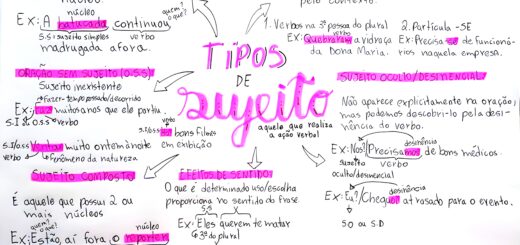 núcleo
quem?
o que?
Ex: A batucada, continuou
S.S: sujeito simples verbo
madrugada afora.
ORAÇÃO SEM SUJEITO (O.S.S)
Sujeito inexistente
Fazer: tempo passado/decorrido
Ex: Faz muitos anos que ele partiu.
S.I & O.S.S verbo
S.I/O.S.S Ventou muito ontem à noite
verbo fenômeno da natureza
SUJEITO COMPOSTO
É aquele que possui 2 ou
mais núcleos
quem?
o que?
núcleo
Ex: Estão aí fora, o repórter
TIPOS
DE
sujeito
aquele que realiza
a ação verbal
verbo
S.I/O.S.S
bons filmes
em exibição
EFEITOS DE SENTIDO:
O que é determinado uso/escolha
proporciona no sentido da frase
S.S
Ex: Eles querem te matar
3ª do plural
pelo contexto.
1. Verbos na 3ª pessoa do plural
Ex: Quebraram a vidraça
da Dona Maria.
2. Partícula -SE
Ex: Precisa-se de funcioná-
rios naquela empresa.
SUJEITO OCULTO/DESINENCIAL:
Não aparece explicitamente na oração,
mas podemos descobri-lo pela desi-
nência do verbo.
desinência
Ex: Nós?/Precisamos de bons médicos.
sujeito verbo
oculto/desinencial
desinência
Ex: Eu?/Cheguei atrasado para o evento.
S.O ou S.D